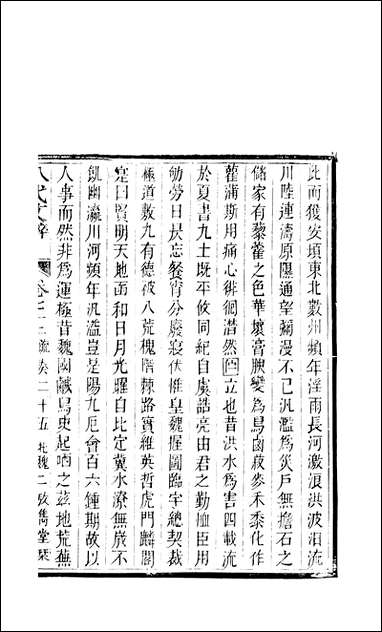 此而獲安頃東北數州頻年淫雨長河激浪洪波汨流
川陸連濤原隰通望彌漫不已汎濫為災戶無擔石之
儲家有藜藿之色華壤膏腴變為舃鹵菽麥禾黍化作
雚蒲斯用痛心徘徊潸然立也昔洪水為害四載流
於夏書九土旣平攸同紀自虞誥亮由君之勤恤臣用
劬勞日昃忘餐宵分廢寢伏惟皇魏握圖臨宇總契裁
極道敷九有德被八荒槐階棘路實維英哲虎門麟閣
寔曰賢明天地函和日月光曜自比定冀水潦無歲不
飢幽瀛川河頻年汎濫豈是陽九厄會百六鍾期故以
人事而然非為運極昔魏國鹹舃史起哂之茲地荒蕪
八代文粹 卷七十三 疏奏二十五 北魏二 攷雋堂栞